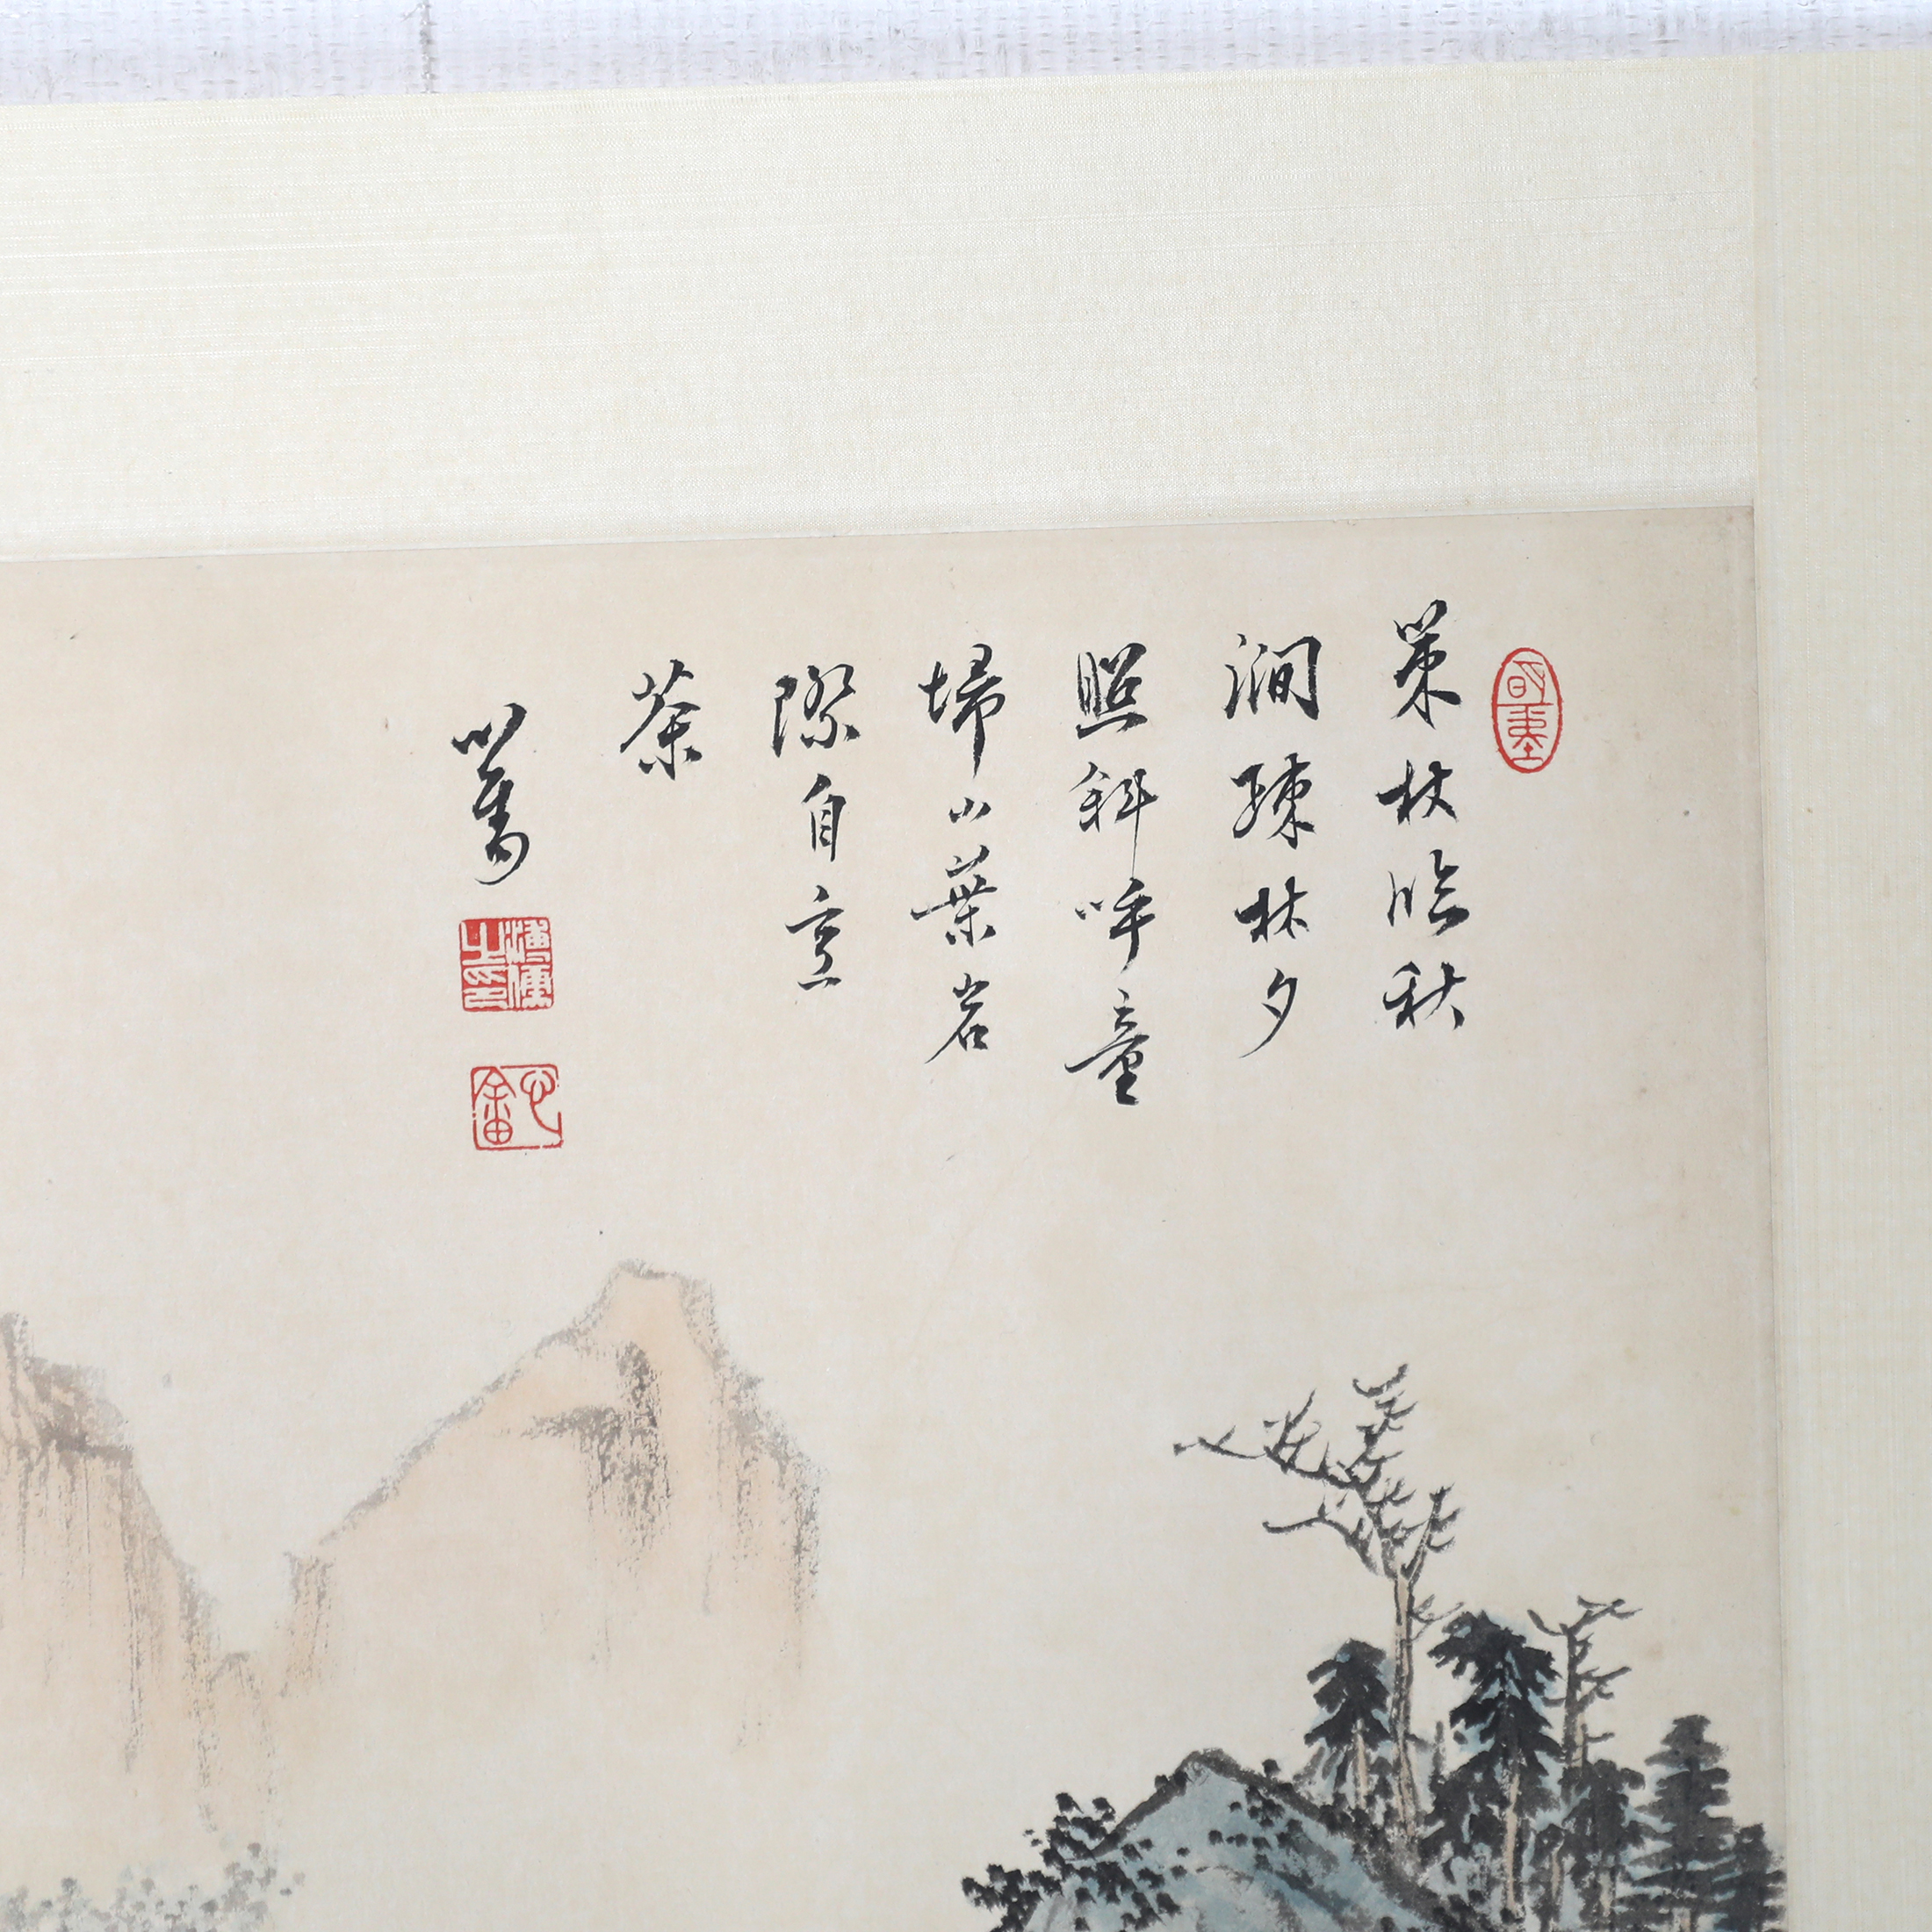 策杖臨秋
澗疎林夕
照斜呼童
埽山葉岩
際自烹
茶
心畬
溥儒
之印
心畬